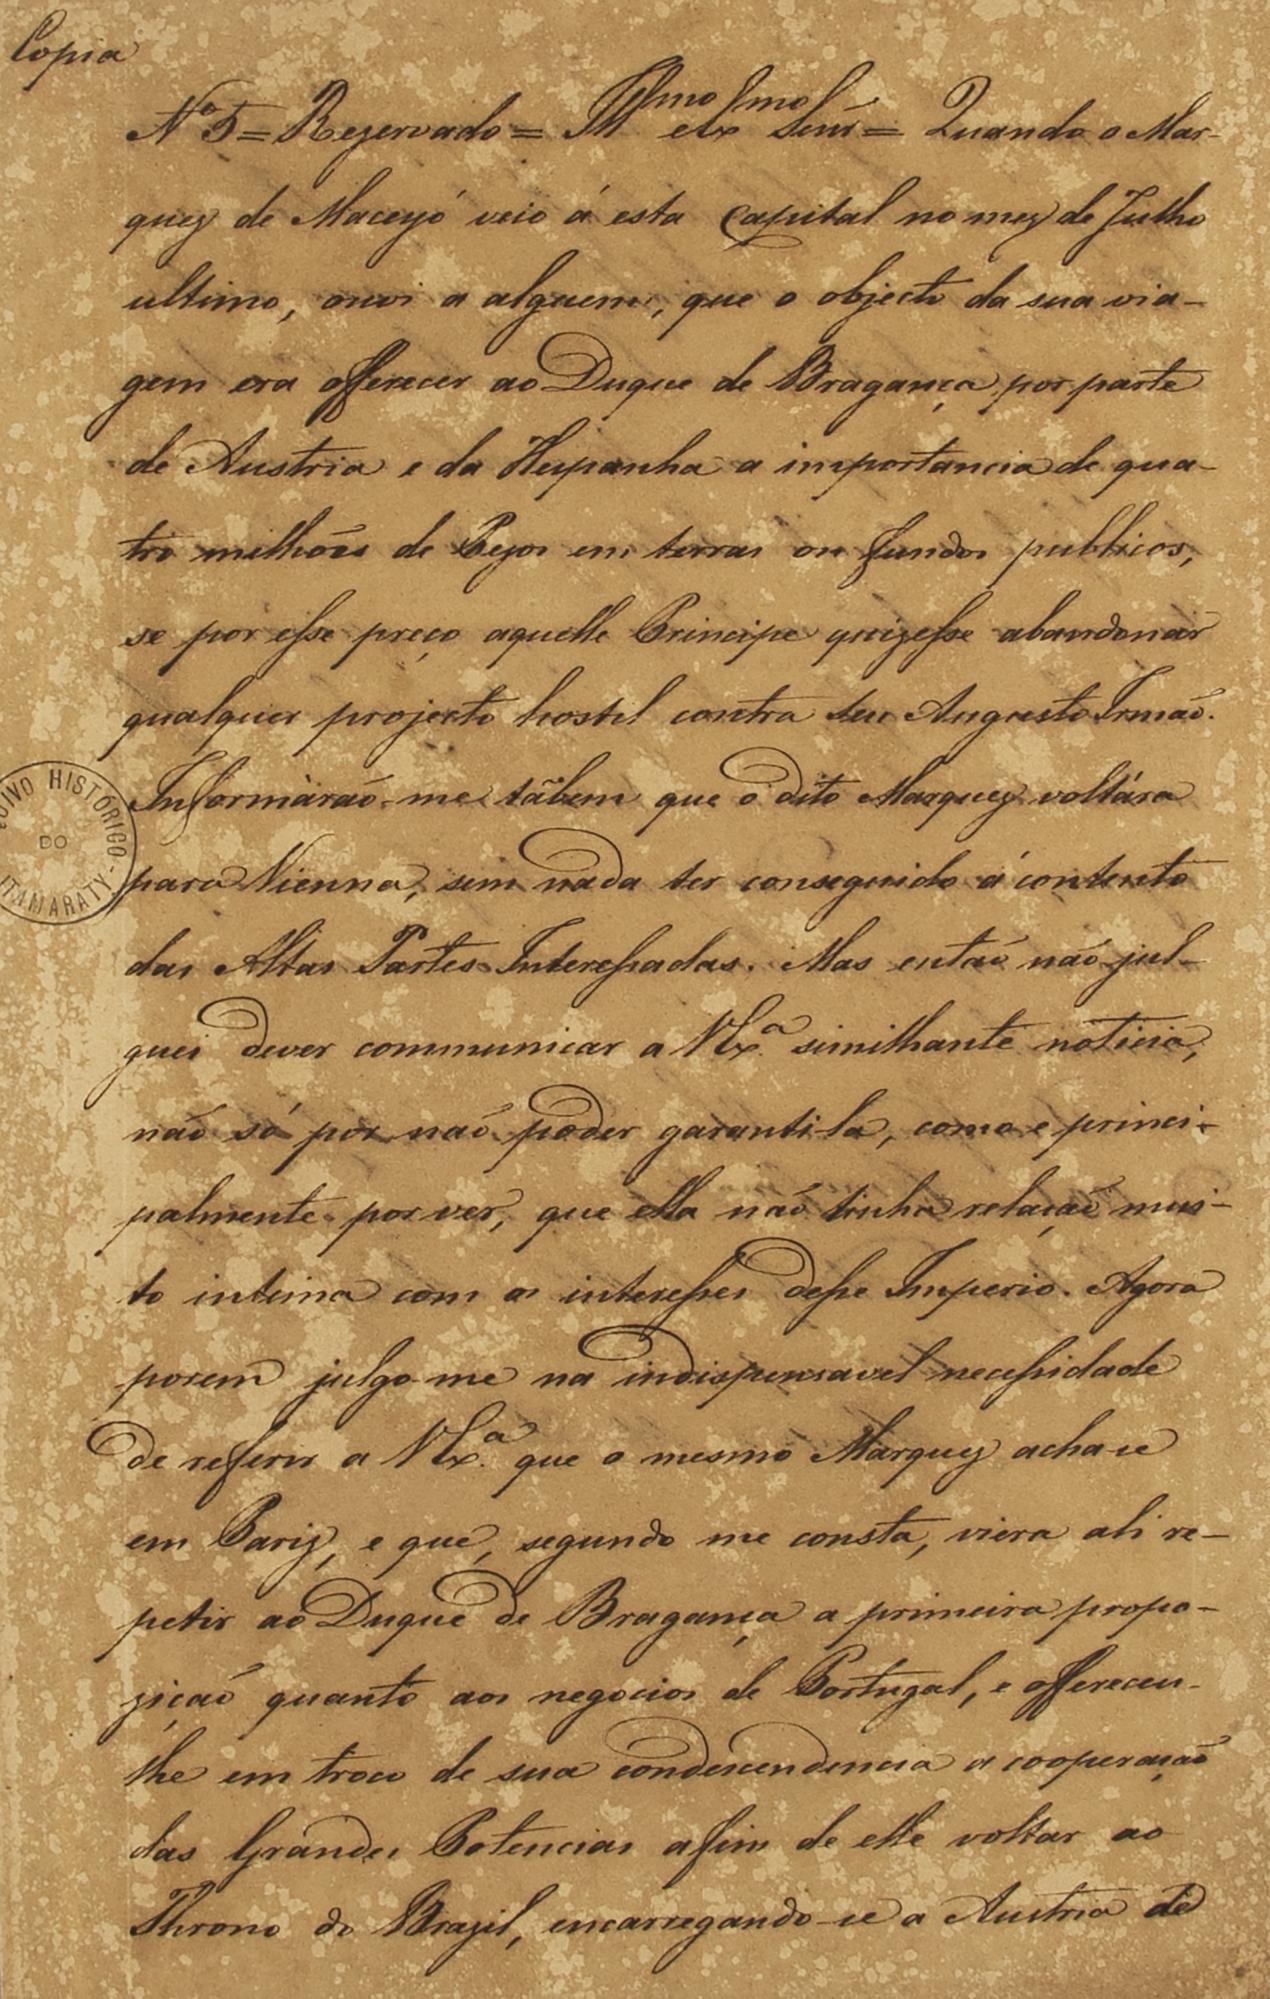 Copia
Nº 5 = Rezervado = Illmo e Exmo Senr = Quando o Mar-
quez de Maceyó veio á esta Capital no mez de Julho
ultimo, ouvi a alguem, que o objecto da sua via-
gem era offerecer ao Duque de Bragança por parte
de Austria e da Hespanha a importancia de qua-
tro milhões de Pezos em terras ou fundos publicos,
se por esse preço aquelle Principe quizesse abandonar
qualquer projecto hostil contra seu Augusto Irmaõ.
Informáraõ-me tãbem que o dito Marquez voltára
para Vienna, sem nada ter conseguido á contento
das Altas Partes Interessadas. Mas entaõ naõ jul-
guei dever communicar a VEx.ª similhante noticia,
naõ só por naõ poder garanti-la, como e princi-
palmente por ver, que ella naõ tinha relaçaõ mui-
to intima com os interesses desse Imperio. Agora
porem julgo-me na indispensavel necessidade
de referir a VEx.ª que o mesmo Marquez acha-se
em Pariz, e que, segundo me consta, viera ali re-
petir ao Duque de Bragança a primeira propo-
ziçaõ quanto aos negocios de Portugal, e offerecer-
lhe em troco de sua condescendencia a cooperaçaõ
das Grandes Potencias afim de elle voltar ao
Throno do Brazil, encarregando-se a Austria de
ARQUIVO HISTORICO
DO
ITAMARATY